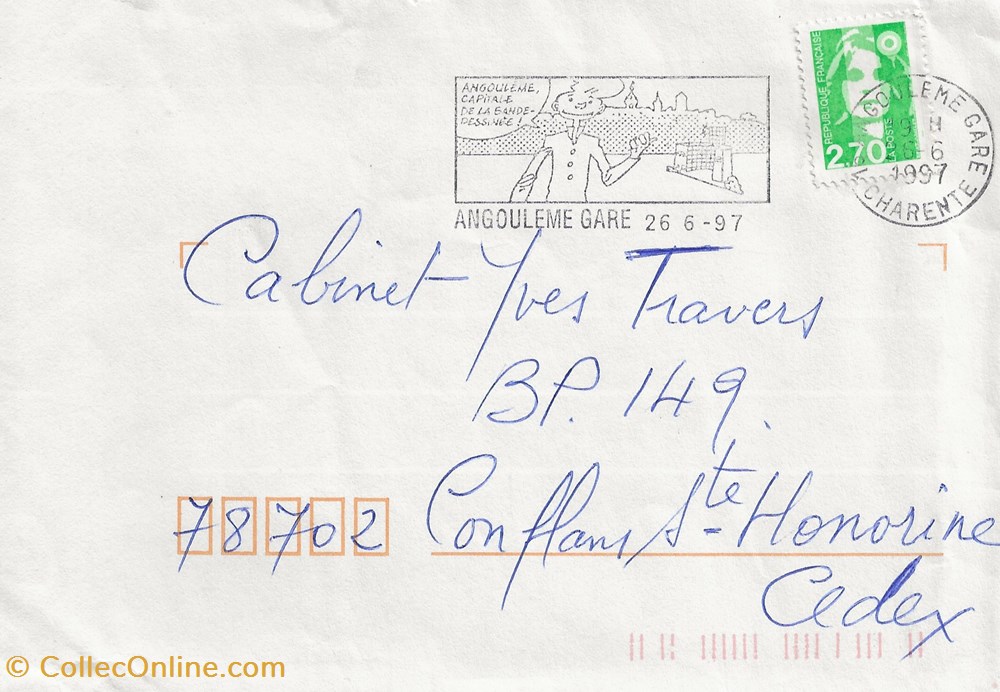 ANGOULÊME,
CAPITALE
DE LA BANDE-
DESSINÉE !
ANGOULEME GARE 26 6 -97
REPUBLIQUE FRANÇAISE
2,70
LA POSTE
GOULEME GARE
9 H
6-6
1997
CHARENTE
Cabinet Yves Travers
BP. 149.
78702 Conflans Ste-Honorine
Cedex
© CollecOnline.com